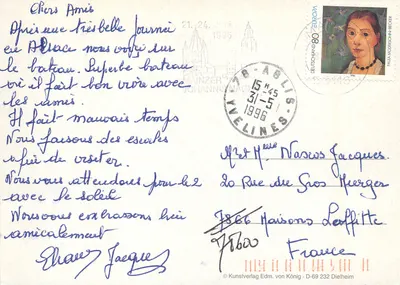 Chers Amis
Après une très belle journée
en Alsace nous voici sur
le bateau. Superbe bateau
où il fait bon vivre avec
les amis.
Il fait mauvais temps
Nous faisons des escales
afin de visiter.
Nous vous attendons pour le 2
avec le soleil
Nous vous embrassons bien
amicalement
Jacques
78-ABLIS
15 H45
31-5
1996
YVELINES
80
Mr et Mme Vascos Jacques
20 Rue du Gros Murger
7866 Maisons Laffitte
78600
France
© Kunstverlag Edm. von König · D-69 232 Dielheim